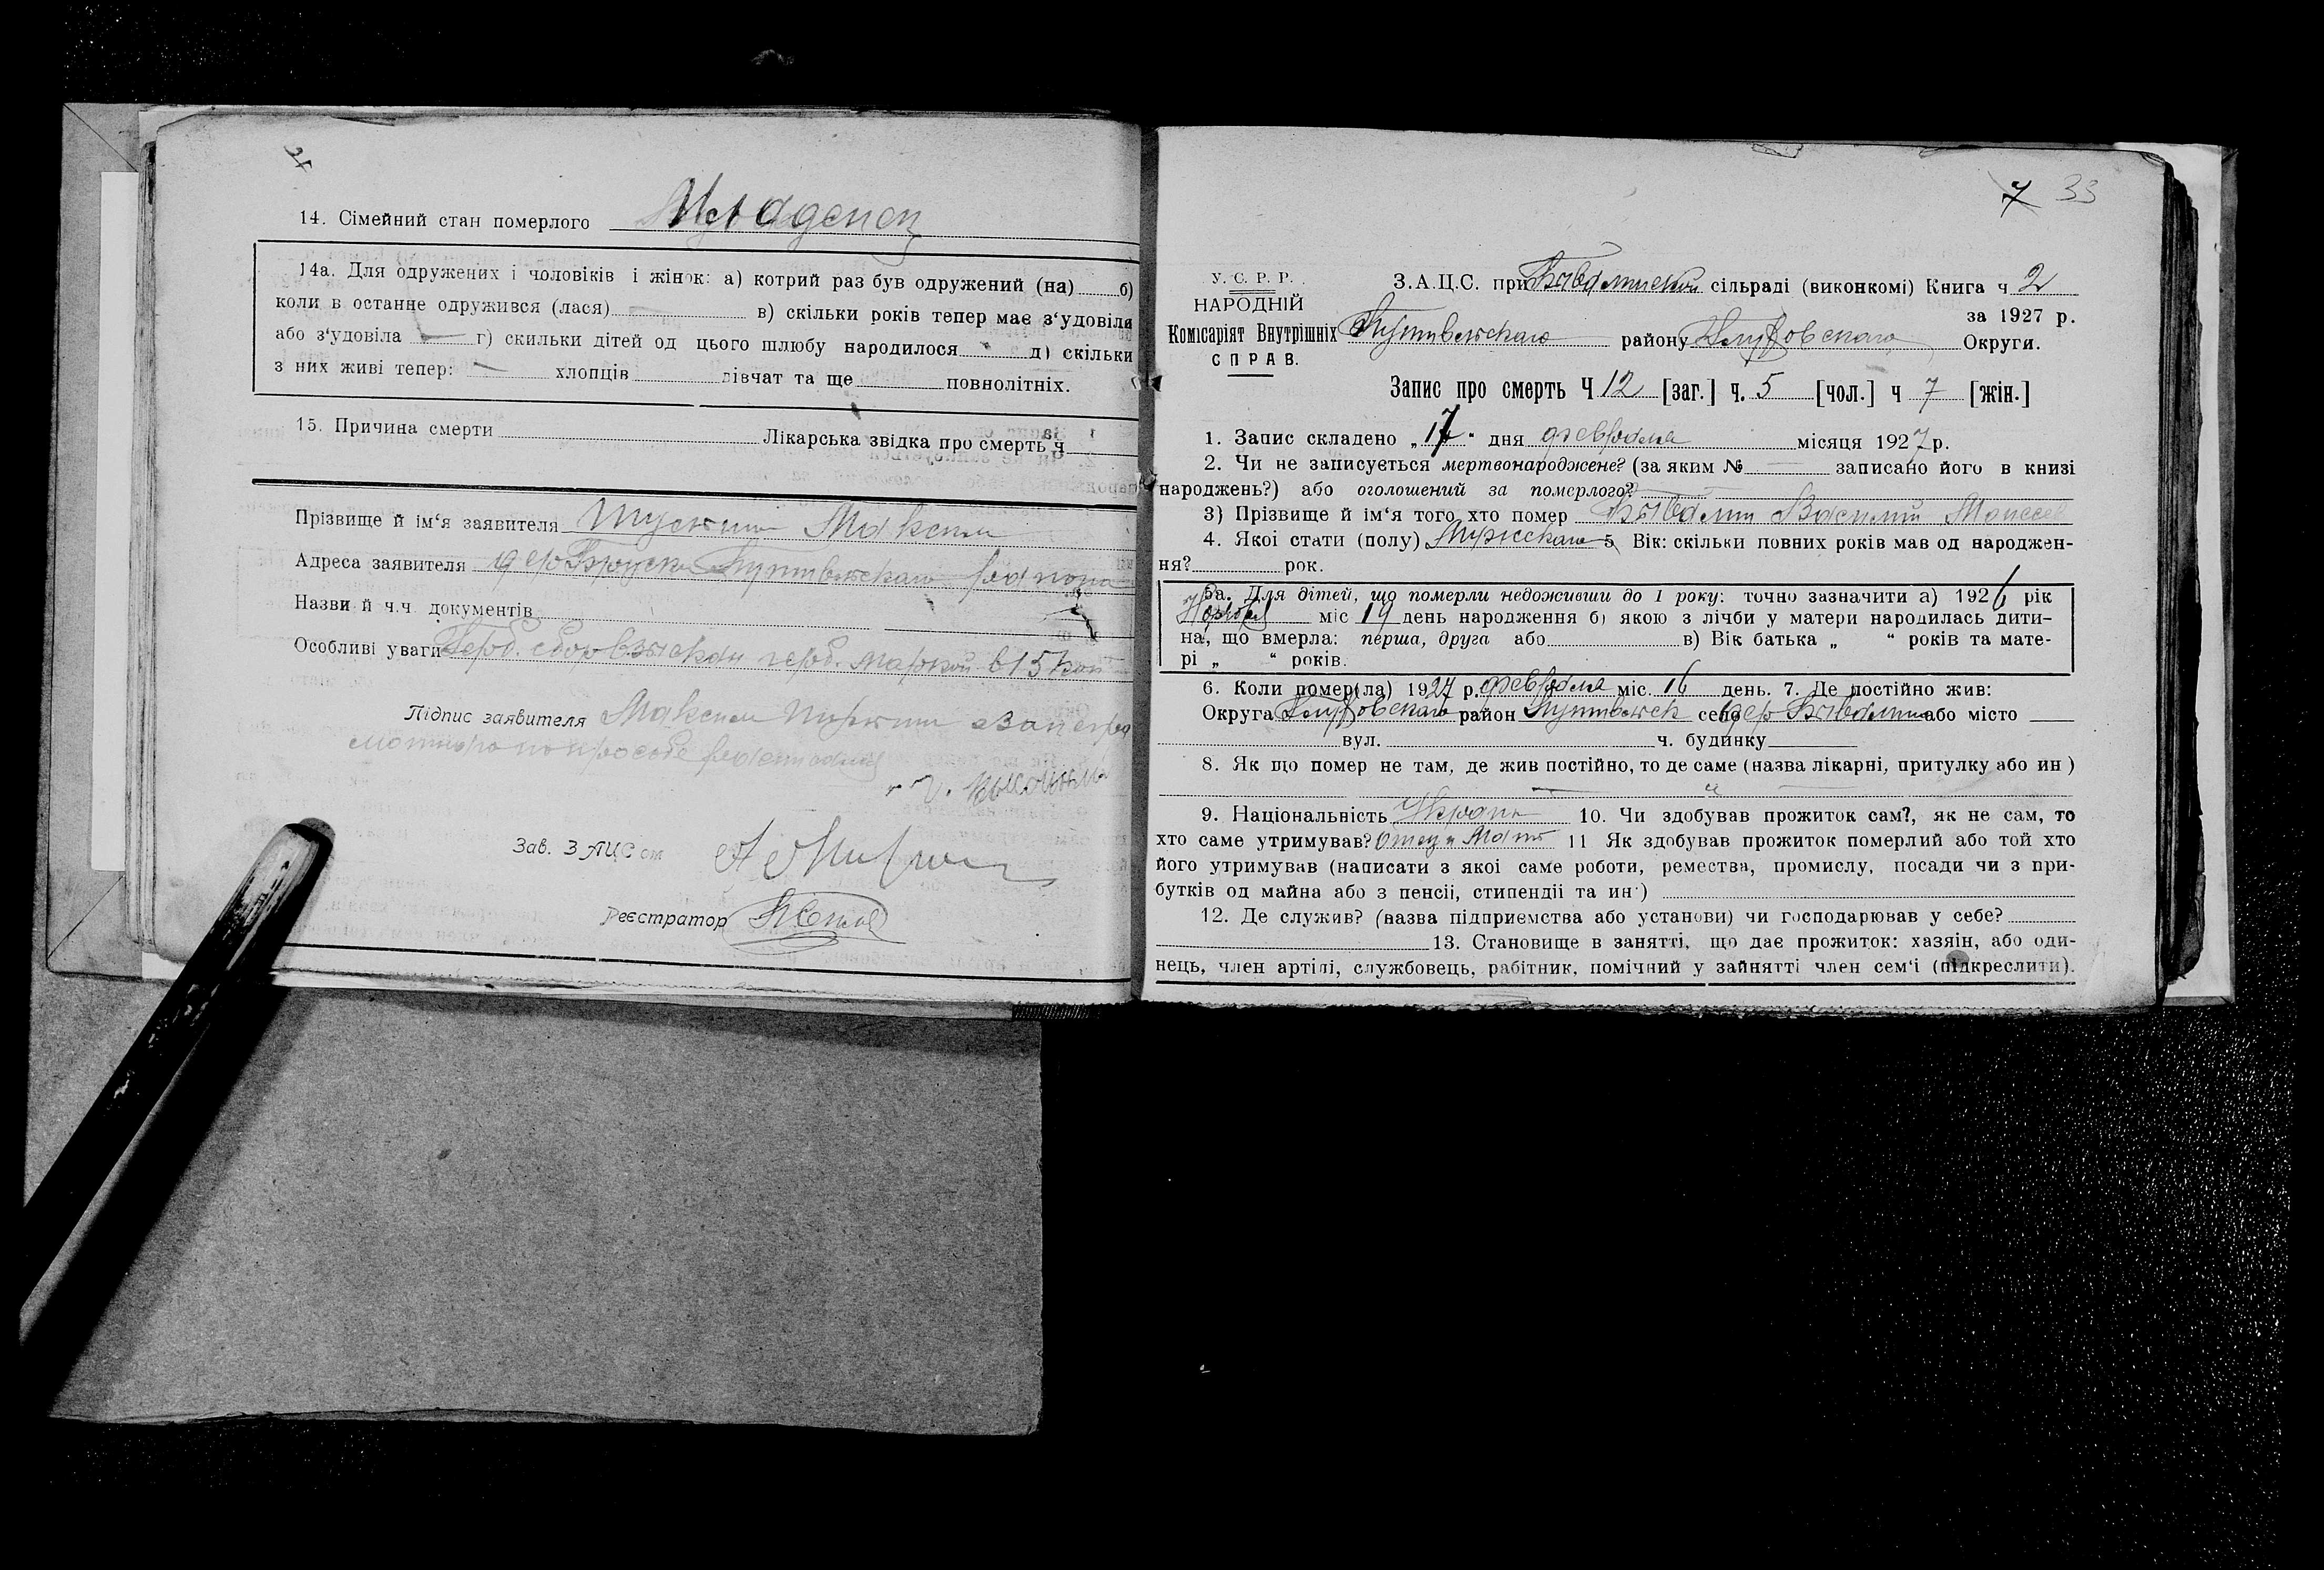 14. Сімейний стан померлого Младенец
14а. Для одружених і чоловіків і жінок: а) котрий раз був одружений (на) б)
коли в останнє одружився (лася) в) скільки років тепер має з‘удовіля
або з‘удовіла г) скильки дітей од цього шлюбу народилося д) скільки
з них живі тепер: хлопців дівчат та ще повнолітніх.
15. Причина смерти Лікарська звідка про смерть ч
Прізвище й ім‘я заявителя Максим
Адреса заявителя Путивльскаго района
Назви й ч.ч. документів
Особливі уваги Герб. сбор взыскан герб. маркой в 15 коп
Підпис заявителя Максим
по просьбе
Зав. ЗАЦСом
Реєстратор
7 33
У. С. Р. Р.
НАРОДНІЙ
Комісаріят Внутрішніх
СПРАВ.
З.А.Ц.С. при сільраді (виконкомі) Книга ч 2
за 1927 р.
Путивльскаго району Глуховскаго Округи.
Запис про смерть Ч 12 [заг.] ч. 5 [чол.] ч 7 [жін.]
1. Запис складено „17“ дня февраля місяця 1927 р.
2. Чи не записується мертвонароджене? (за яким № записано його в книзі
народжень?) або оголошений за померлого?
3) Прізвище й ім‘я того хто помер Василий Моисеев
4. Якоі стати (полу) Мужскаго 5. Вік: скільки повних років мав од народжен-
ня? рок.
5а. Для дітей, що померли недоживши до 1 року: точно зазначити а) 1926 рік
Ноября міс 19 день народження б) якою з лічби у матери народилась дити-
на, що вмерла: перша, друга або в) Вік батька „ “ років та мате-
рі „ “ років.
6. Коли помер(ла) 1927 р. февраля міс. 16 день. 7. Де постійно жив:
Округа Глуховскаго район Путивльск село дер або місто
вул. ч. будинку
8. Як що помер не там, де жив постійно, то де саме (назва лікарні, притулку або ин)
9. Національність Украин 10. Чи здобував прожиток сам?, як не сам, то
хто саме утримував? Отец и Мать 11 Як здобував прожиток померлий або той хто
його утримував (написати з якоі саме роботи, ремества, промислу, посади чи з при-
бутків од майна або з пенсіі, стипендіі та ин·)
12. Де служив? (назва підприємства або установи) чи господарював у себе?
13. Становище в занятті, що дає прожиток: хазяін, або оди-
нець, член артілі, службовець, рабітник, помічний у зайнятті член сем‘і (підкреслити).